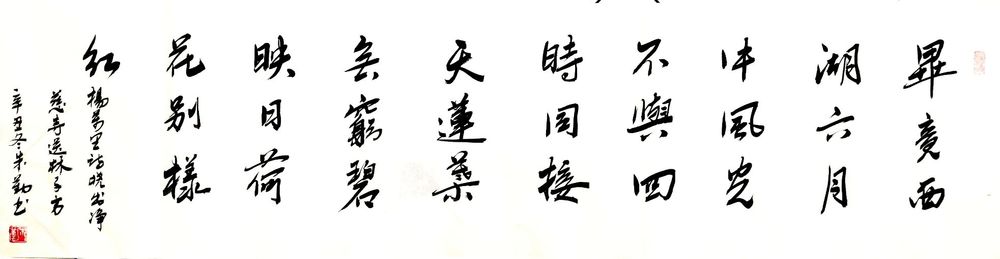 畢竟西
湖六月
中風光
不與四
時同接
天蓮葉
無窮碧
映日荷
花别樣
紅 楊萬里詩曉出净
慈寺送林子方
辛丑冬朱勤书